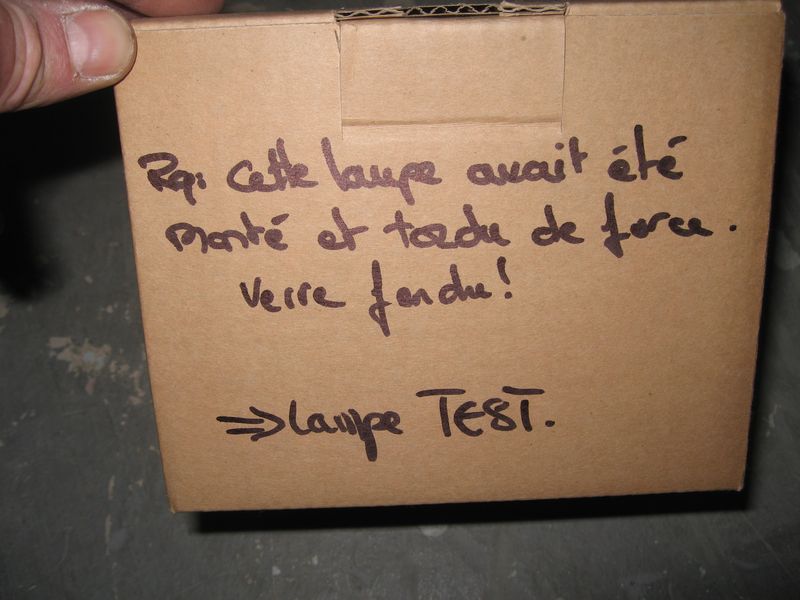 Rq: Cette lampe avait été
monté et tordu de force.
verre fendu!
⇒ Lampe TEST.